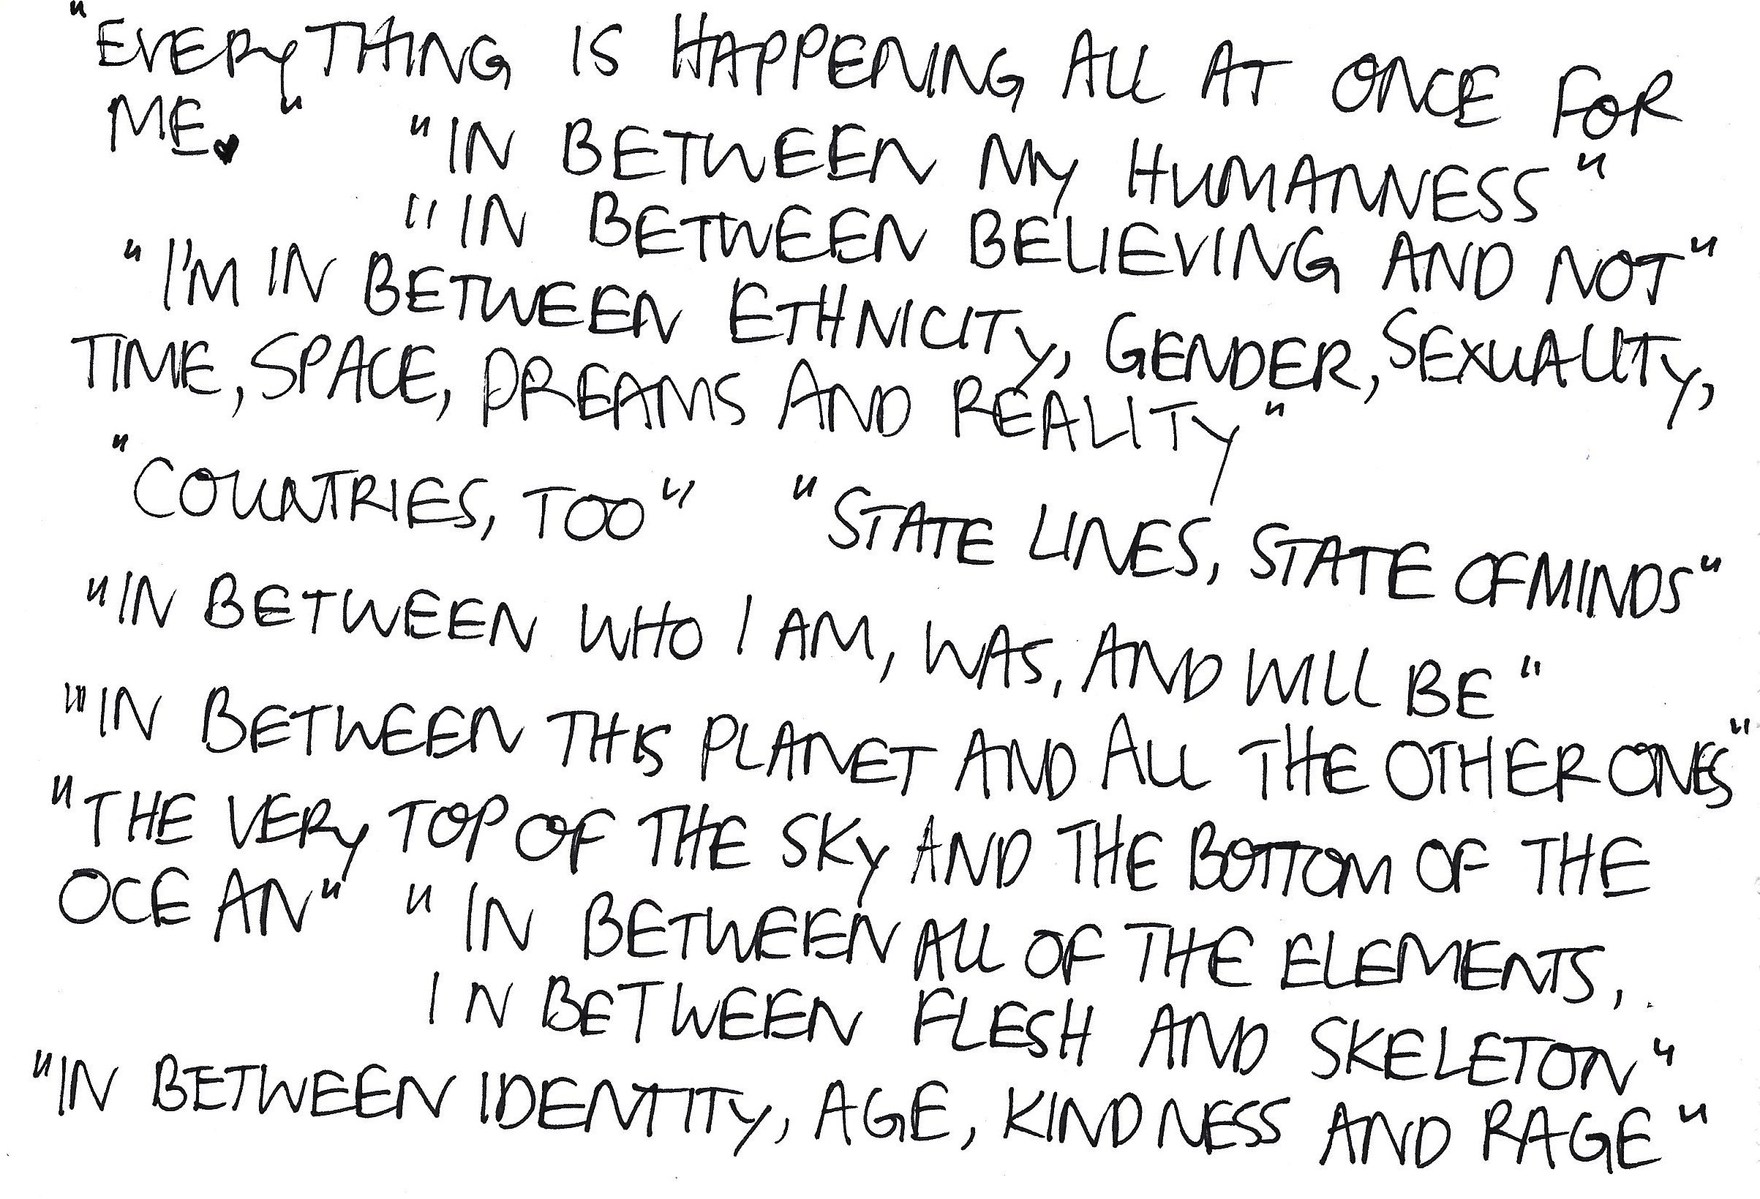 "EVERYTHING IS HAPPENING ALL AT ONCE FOR
ME♥" "IN BETWEEN MY HUMANNESS"
"IN BETWEEN BELIEVING AND NOT"
"I'M IN BETWEEN ETHNICITY, GENDER, SEXUALITY,
TIME, SPACE, DREAMS AND REALITY"
"COUNTRIES, TOO" "STATE LINES, STATE OF MINDS"
"IN BETWEEN WHO I AM, WAS, AND WILL BE"
"IN BETWEEN THIS PLANET AND ALL THE OTHER ONES"
"THE VERY TOP OF THE SKY AND THE BOTTOM OF THE
OCEAN" "IN BETWEEN ALL OF THE ELEMENTS,
IN BETWEEN FLESH AND SKELETON"
"IN BETWEEN IDENTITY, AGE, KINDNESS AND RAGE"